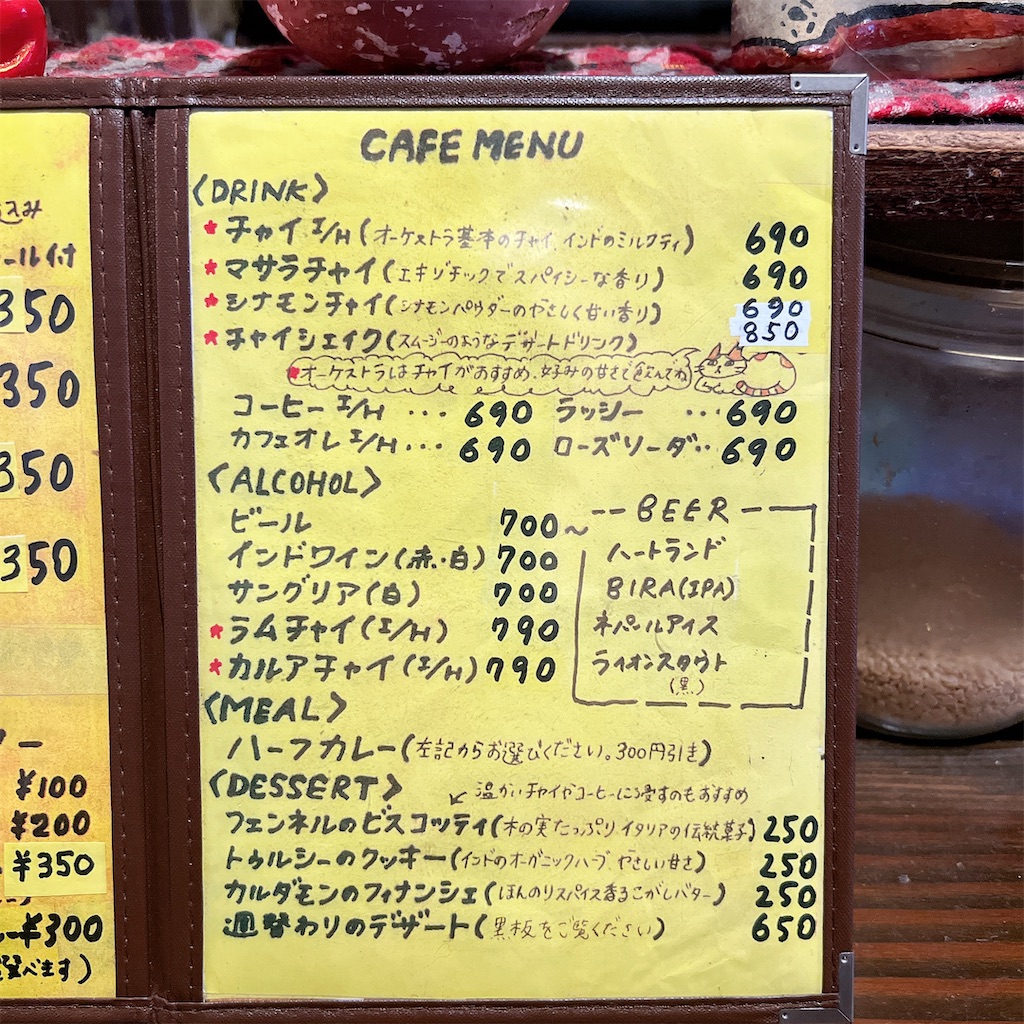 込み
ール付
350
350
350
350
ー
¥100
¥200
¥350
¥300
選べます)
CAFE MENU
〈DRINK〉
*チャイ I/H (オーケストラ基本のチャイ、インドのミルクティ) 690
*マサラチャイ(エキゾチックでスパイシーな香り) 690
*シナモンチャイ(シナモンパウダーのやさしく甘い香り) 690
*チャイシェイク(スムージーのようなデザートドリンク) 850
*オーケストラはチャイがおすすめ、好みの甘さで飲んでね
コーヒー I/H ... 690 ラッシー ... 690
カフェオレ I/H ... 690 ローズソーダ.. 690
〈ALCOHOL〉
ビール 700~
インドワイン(赤・白) 700
サングリア(白) 700
*ラムチャイ(I/H) 790
*カルアチャイ(I/H) 790
BEER
ハートランド
BIRA(IPA)
ネパールアイス
ライオンスタウト
(黒)
〈MEAL〉
ハーフカレー(左記からお選びください。300円引き)
〈DESSERT〉
↙温かいチャイやコーヒーにひたすのもおすすめ
フェンネルのビスコッティ(木の実たっぷりイタリアの伝統菓子) 250
トゥルシーのクッキー(インドのオーガニックハーブ、やさしい甘さ) 250
カルダモンのフィナンシェ(ほんのりスパイス香るこがしバター) 250
週替わりのデザート(黒板をご覧ください) 650